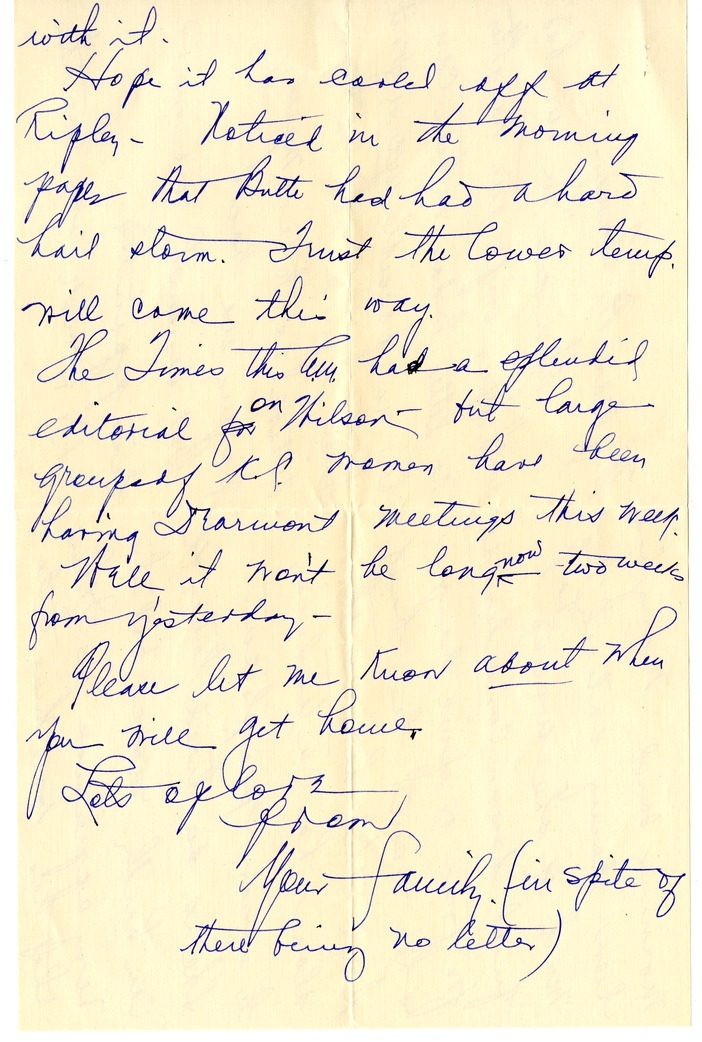 with it.
Hope it has cooled off at
Ripley - Noticed in the morning
paper that Butte had had a hard
hail storm. Trust the lower temp.
will come this way.
The Times this a.m. had a splendid
editorial for on Wilson - but large
groups of K.C. women have been
having Dearmont meetings this week.
Well it won't be long now two weeks
from yesterday -
Please let me know about when
you will get home.
Lots of love
from
Your family. (in spite of
there being no letter)